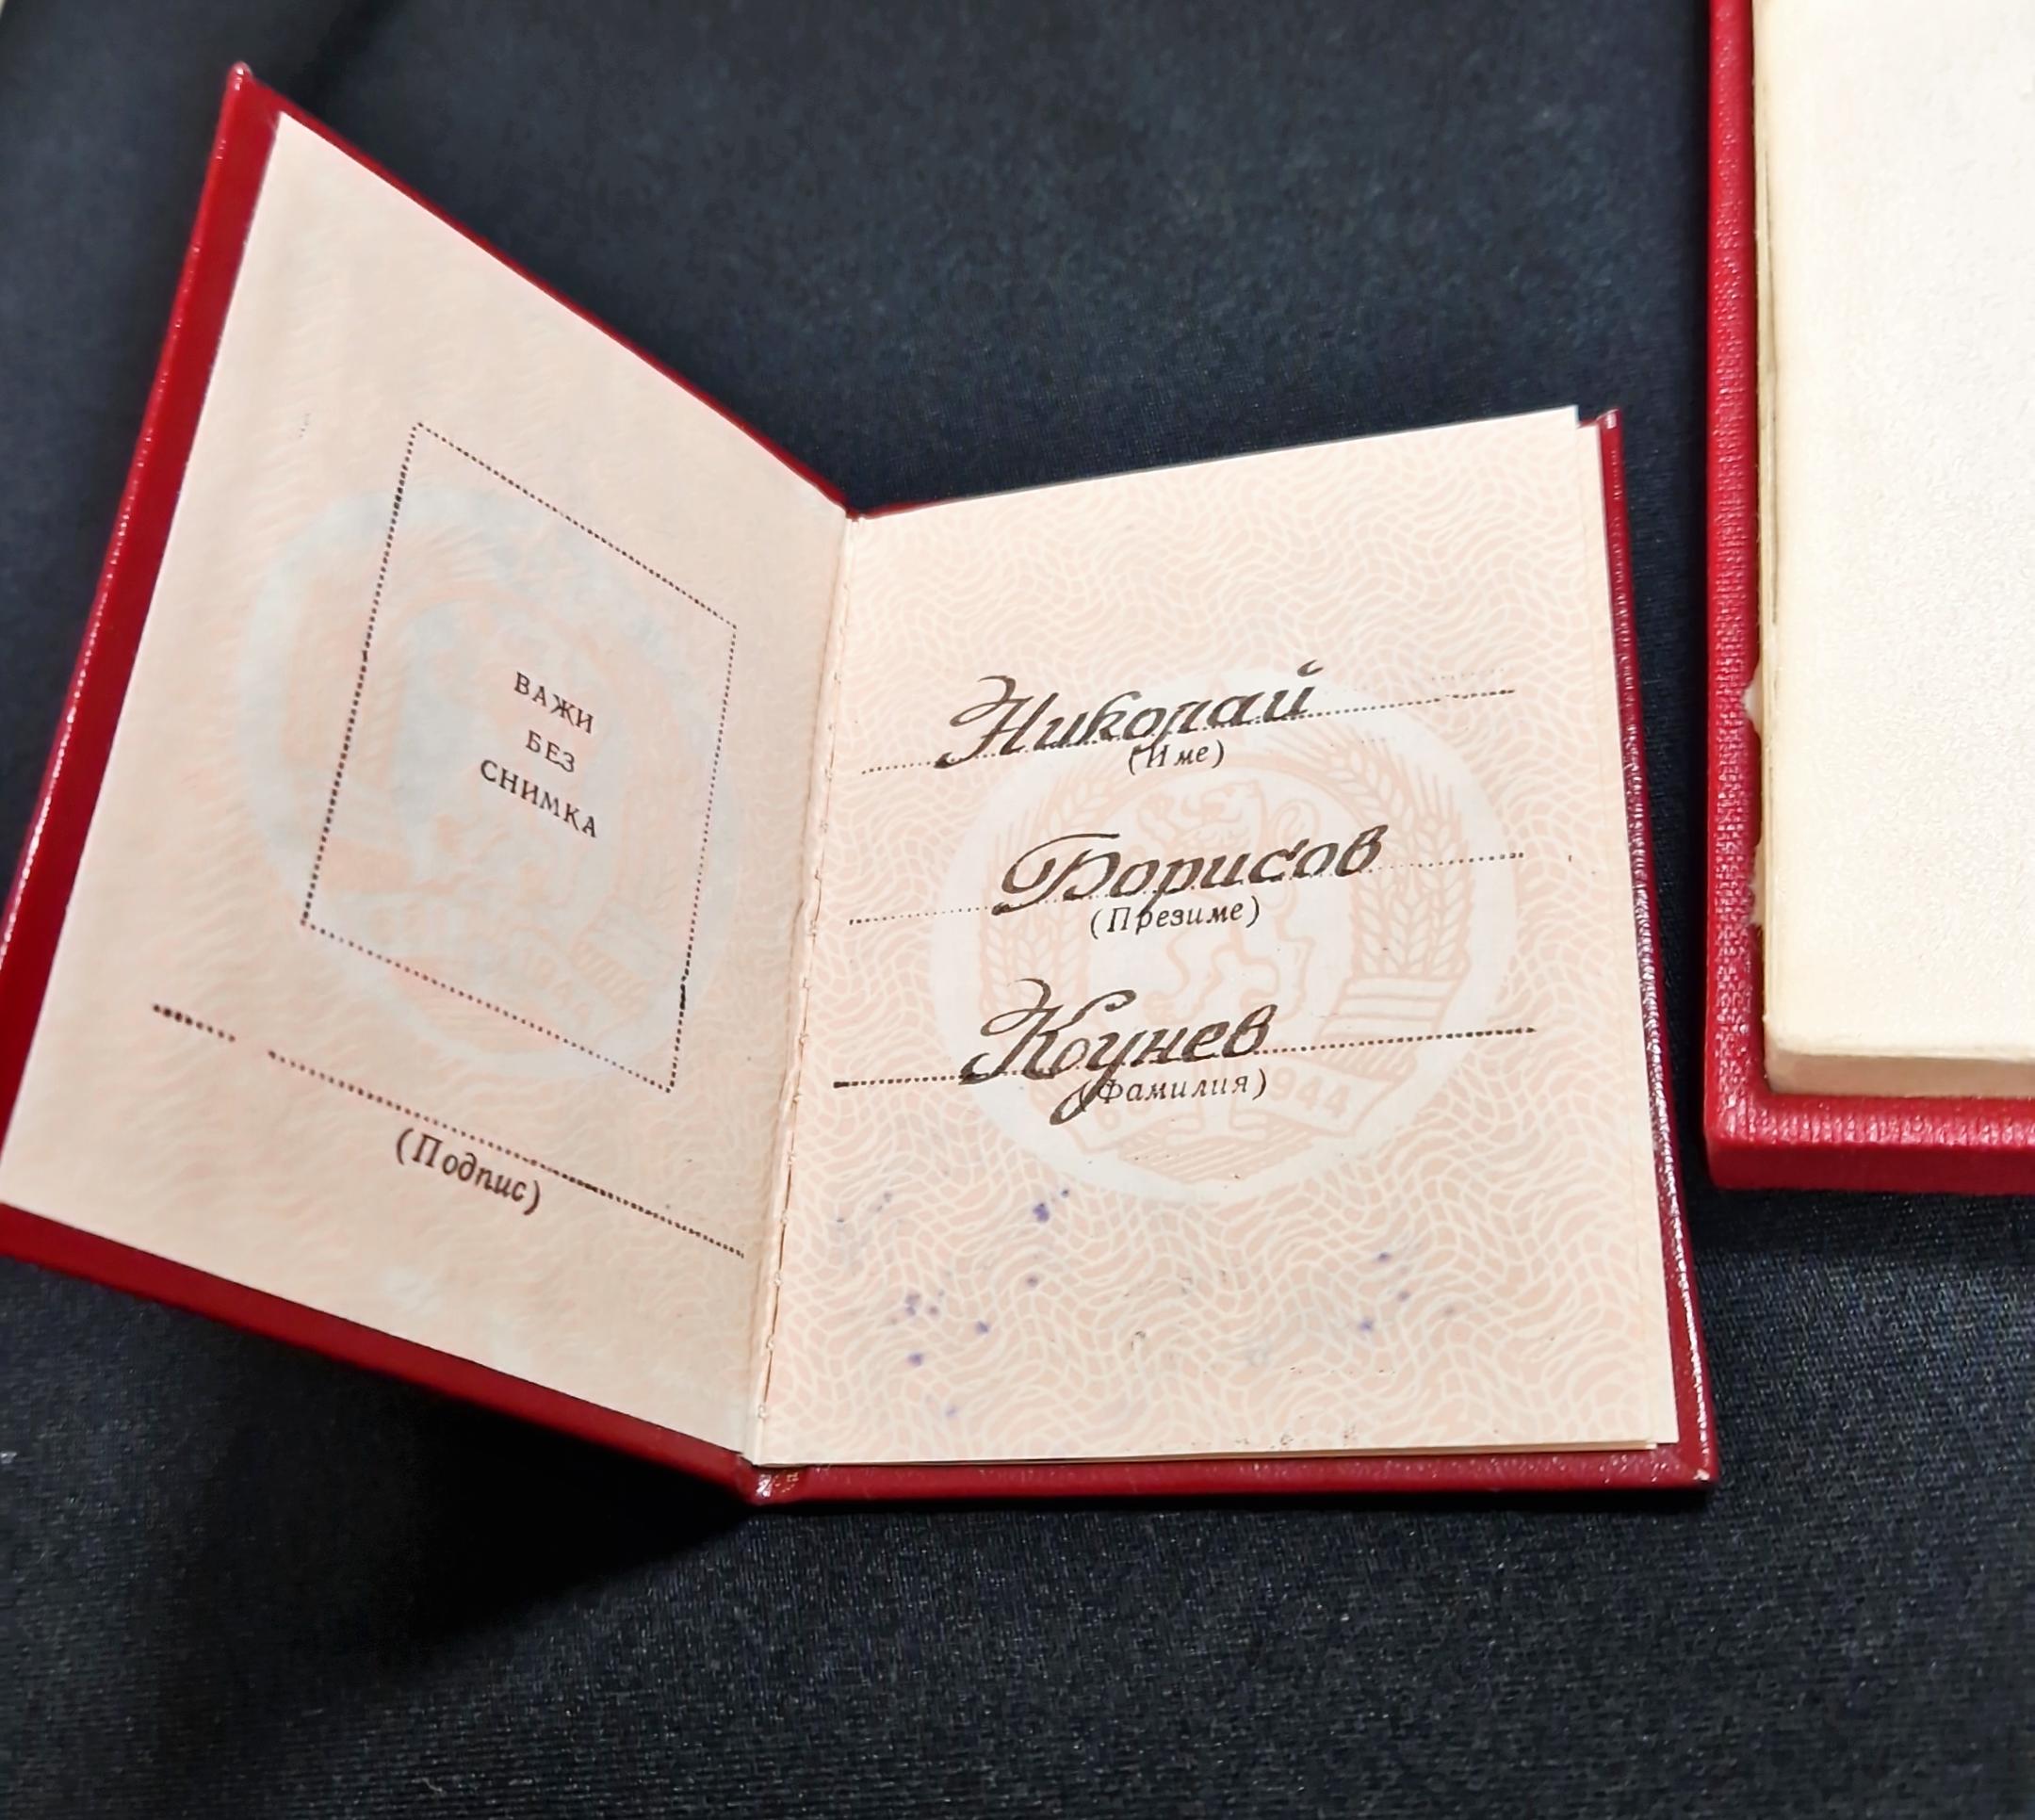 ВАЖИ
БЕЗ
СНИМКА
(Подпис)
Николай
(Име)
Борисов
(Презиме)
Коунев
(Фамилия)
1944